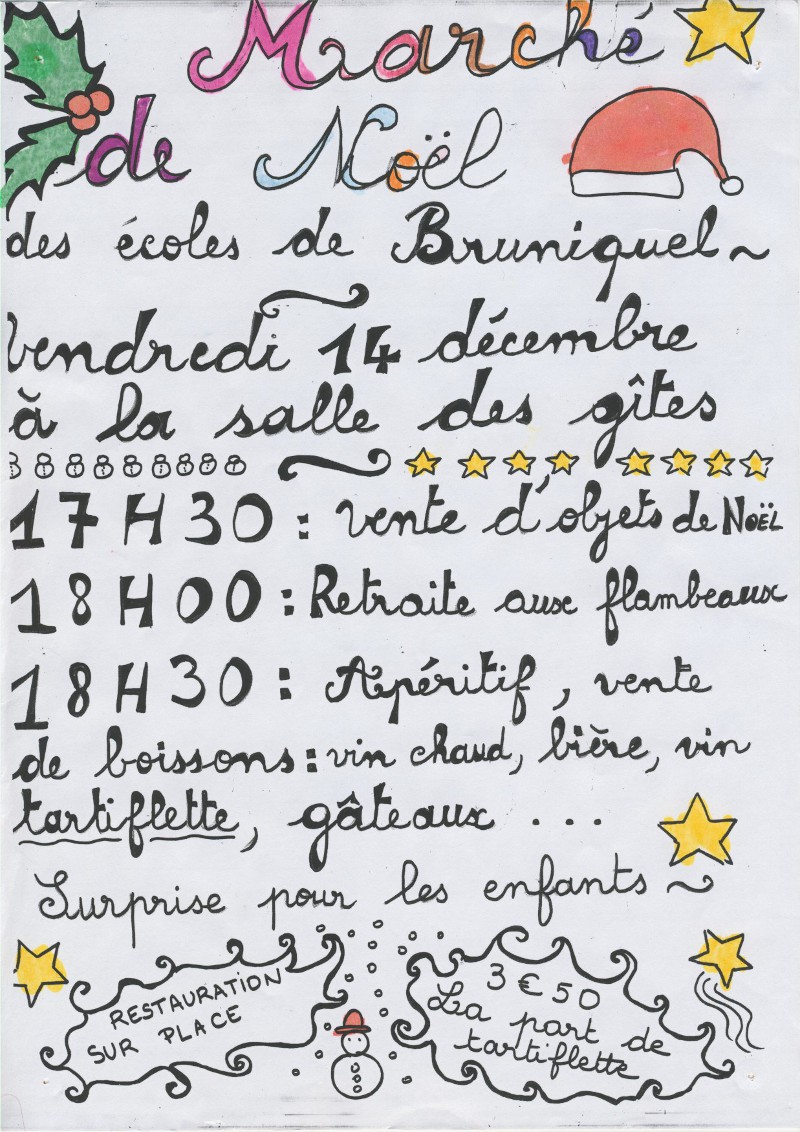 Marché
de Noël
des écoles de Bruniquel
Vendredi 14 décembre
à la salle des gîtes
17H30 : vente d'objets de NOËL
18H00 : Retraite aux flambeaux
18H30 : Apéritif, vente
de boissons : vin chaud, bière, vin
tartiflette, gâteaux ...
Surprise pour les enfants
RESTAURATION
SUR PLACE
3 € 50
La part de
tartiflette